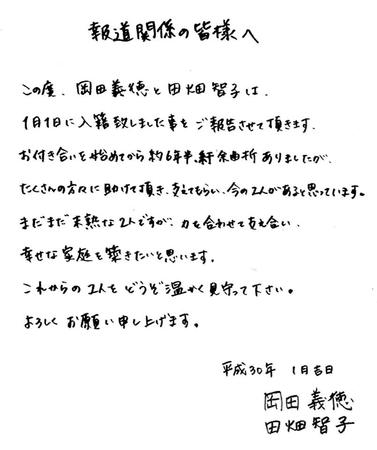 報道関係の皆様へ
この度、岡田義徳と田畑智子は、
1月1日に入籍致しました事をご報告させて頂きます。
お付き合いを始めてから約6年半、紆余曲折ありましたが、
たくさんの方々に助けて頂き、支えてもらい、今の2人があると思っています。
まだまだ未熟な2人ですが、力を合わせて支え合い、
幸せな家庭を築きたいと思います。
これからの2人をどうぞ温かく見守って下さい。
よろしくお願い申し上げます。
平成30年 1月吉日
岡田義徳
田畑智子